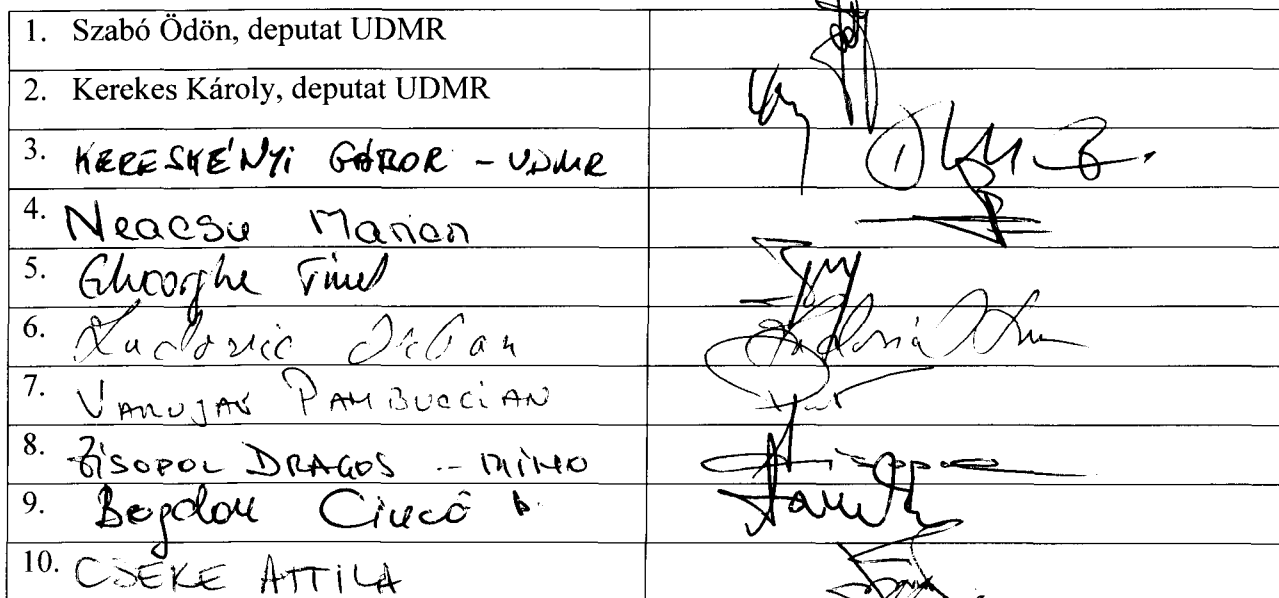 1. Szabó Ödön, deputat UDMR
2. Kerekes Károly, deputat UDMR
3. KERESKÉNYI GÁBOR - UDMR
4. Neacsu Marian
5. Gheorghe Tinel
6. Ludovic Orban
7. VARUJAN PAMBUCCIAN
8. ZISOPOL DRAGOS - MINO
9. Bogdan Ciucă
10. CSEKE ATTILA